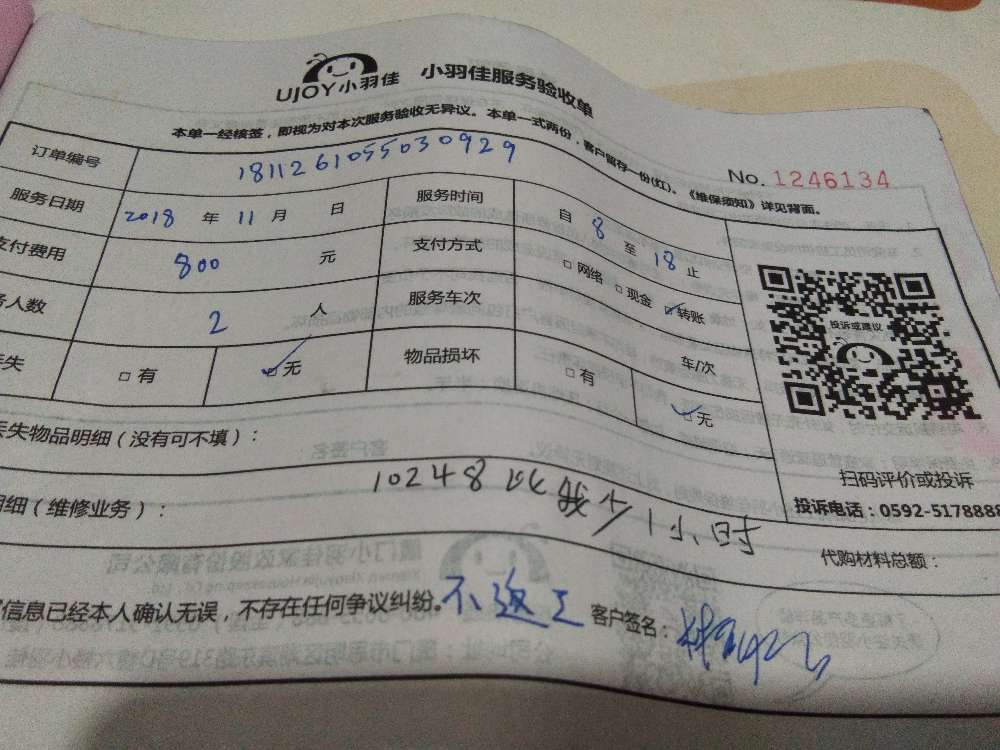 UJOY小羽佳 小羽佳服务验收单
本单一经核签，即视为对本次服务验收无异议。本单一式两份，客户留存一份(红)。《维保须知》详见背面。
No. 1246134
订单编号 181126105503092​9
服务日期 2018 年 11 月 日 服务时间 自 8 至 18 止
支付费用 800 元 支付方式 □网络 □现金 ☑转账
务人数 2 人 服务车次 车/次
丢失 □有 ☑无 物品损坏 □有 ☑无
投诉或建议
丢失物品明细（没有可不填）：
扫码评价或投诉
投诉电话：0592-5178888
明细（维修业务）： 10248 小时
代购材料总额：
信息已经本人确认无误，不存在任何争议纠纷。不返工 客户签名：